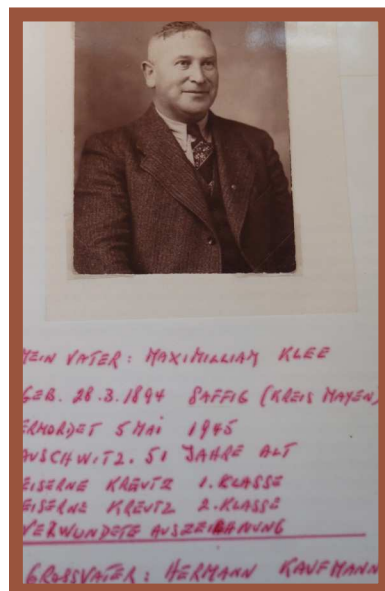 MEIN VATER: MAXIMILLIAN KLEE
GEB. 28.3.1894 SAFFIG (KREIS MAYEN)
ERMORDET 5 MAI 1945
AUSCHWITZ. 51 JAHRE ALT
EISERNE KREUTZ 1. KLASSE
EISERNE KREUTZ 2. KLASSE
VERWUNDETE AUSZEICHNUNG
GROSSVATER: HERMANN KAUFMANN